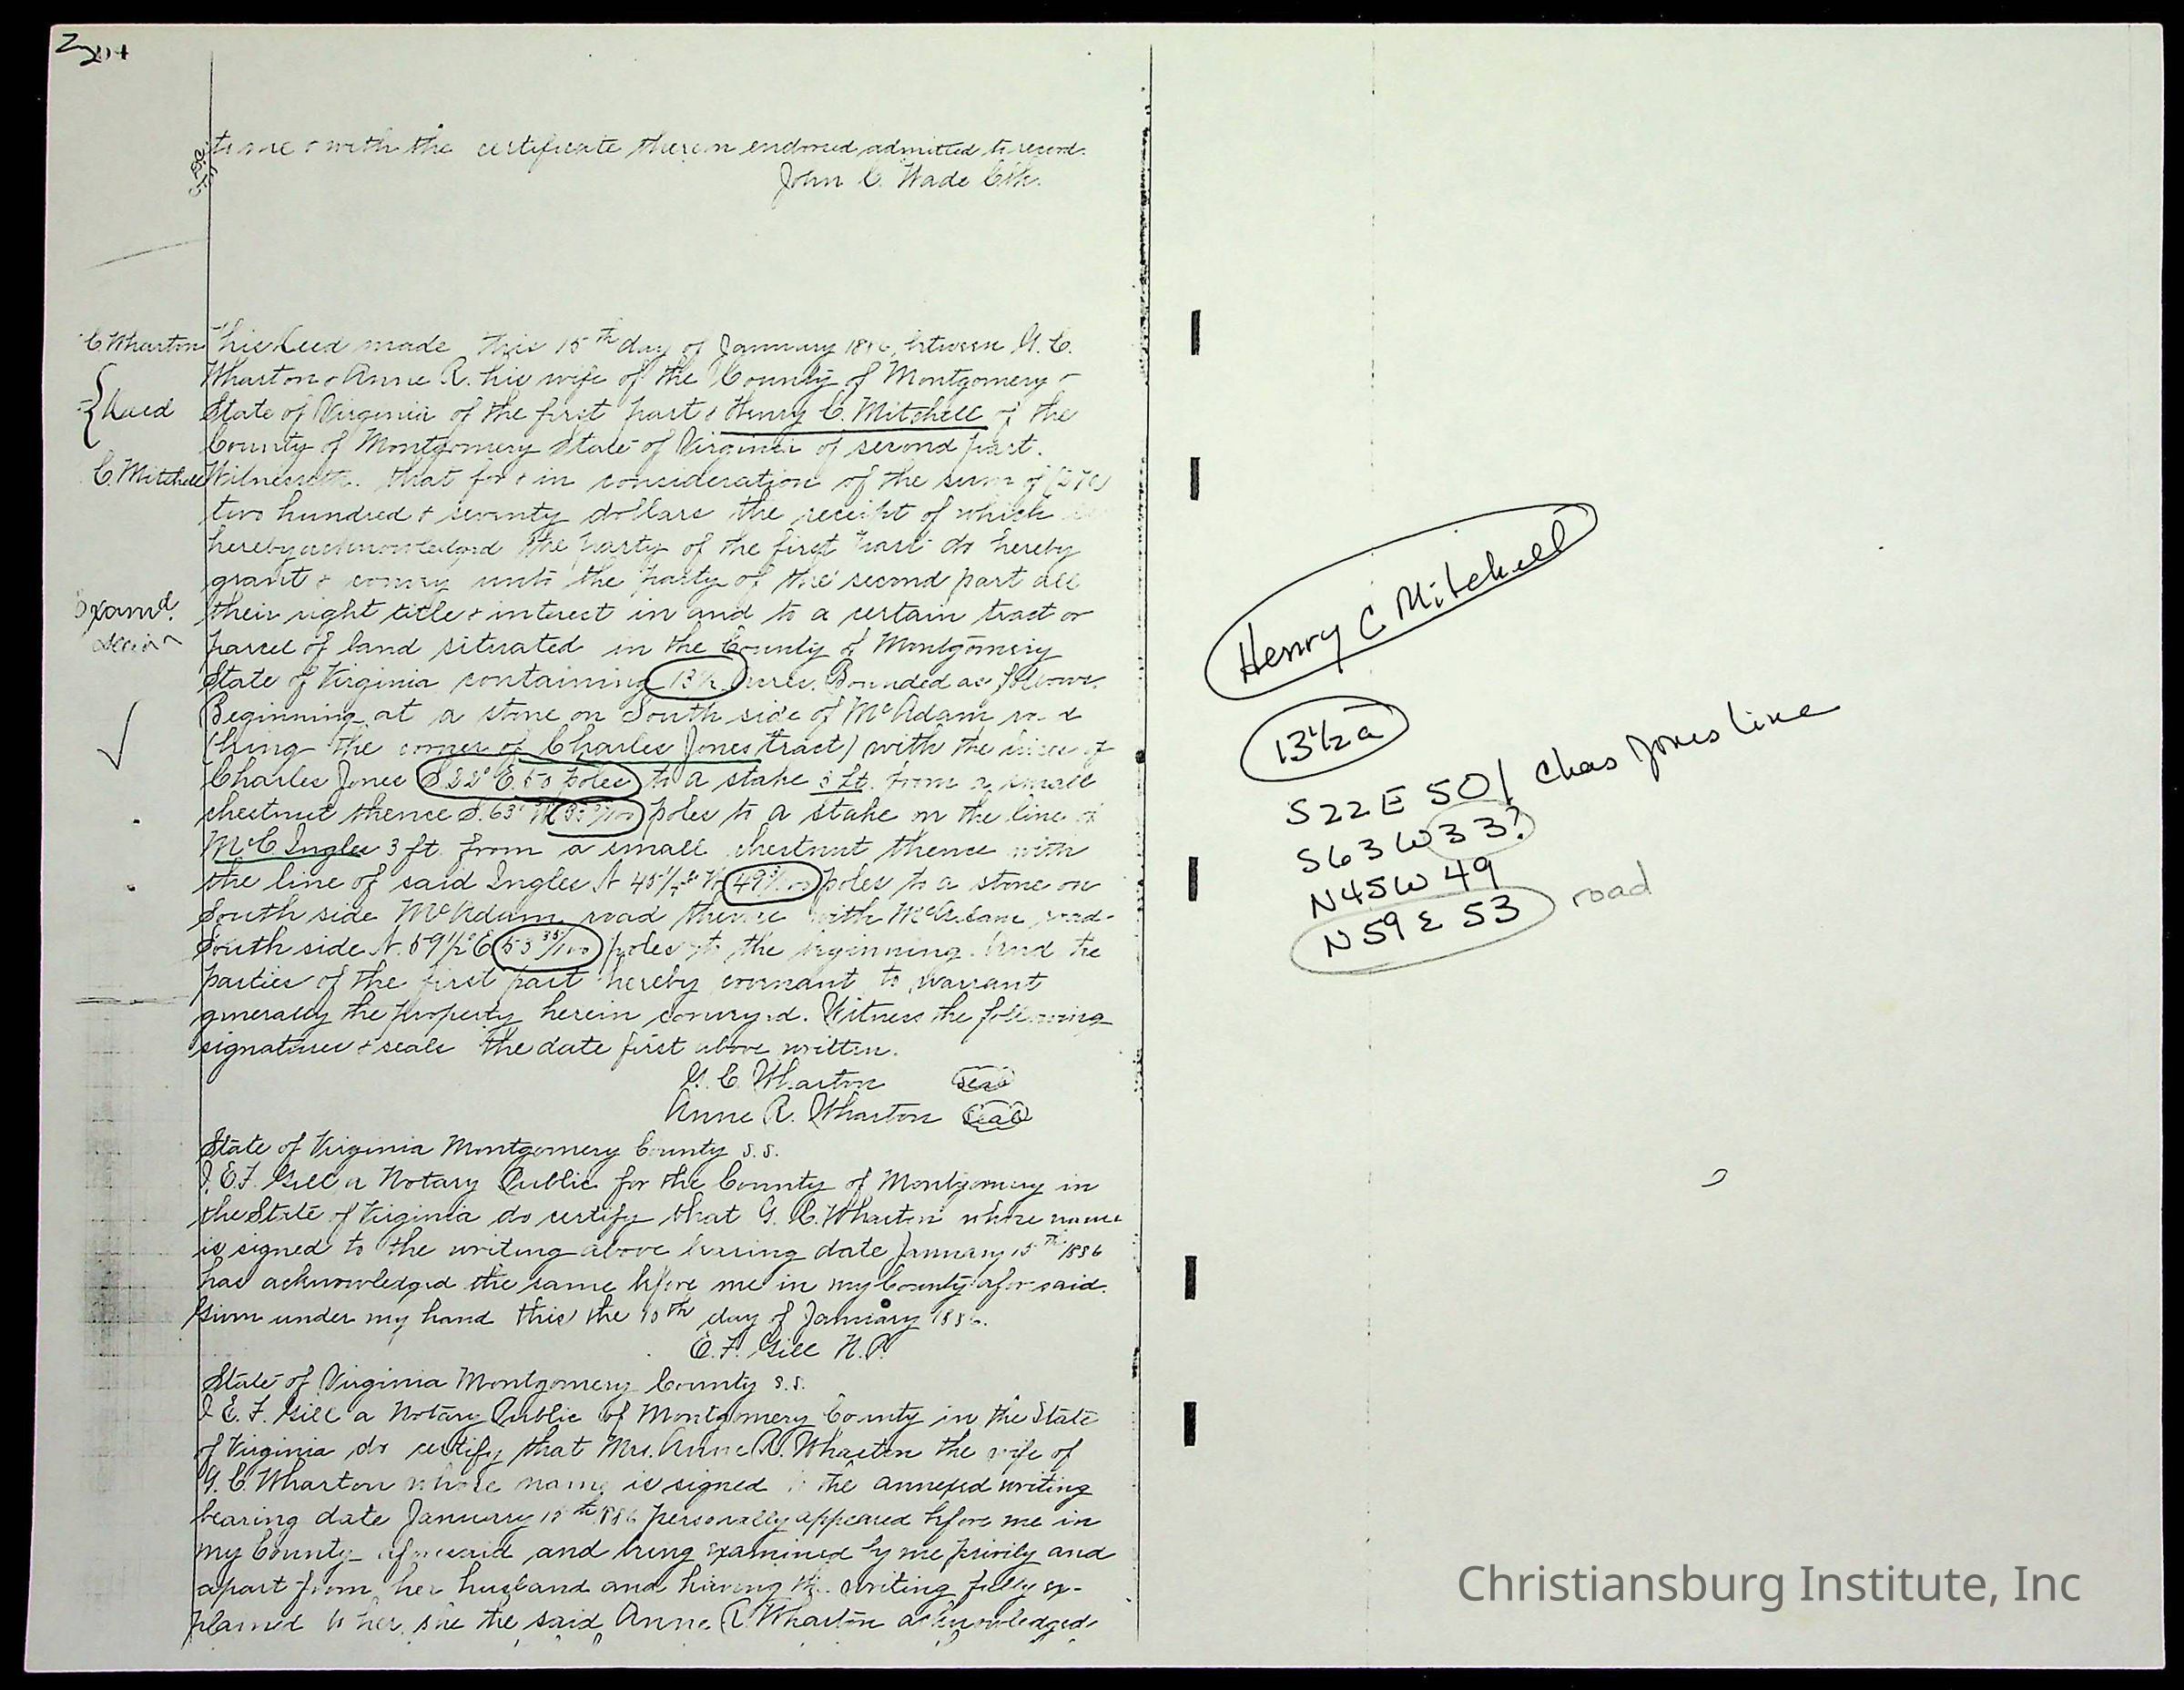 to me & with the certificate thereon endorsed admitted to record.
John C. Wade Clk.
C. Wharton
Deed
C. Mitchell
Examd.
This Deed made this 15th day of January 1886, between G. C.
Wharton & Anne R. his wife of the County of Montgomery &
State of Virginia of the first part & Henry C. Mitchell of the
County of Montgomery State of Virginia of second part.
Witnesseth. that for & in consideration of the sum of (270)
two hundred & seventy dollars the receipt of which is
hereby acknowledged the party of the first part do hereby
grant & convey unto the party of the second part all
their right title & interest in and to a certain tract or
parcel of land situated in the County of Montgomery
State of Virginia containing 13 1/2 acres. Bounded as follows.
Beginning at a stone on South side of McAdam road
(being the corner of Charles Jones tract) with the lines of
Charles Jones S. 22° E. 50 poles to a stake 3 ft. from a small
chestnut thence S. 63° W poles to a stake on the line of
McC Ingles 3 ft. from a small chestnut thence with
the line of said Ingles N 45 W 49 poles to a stone on
South side McAdam road thence with McAdam road
South side N. 59 1/2° E 53 35/100 poles to the beginning. And the
parties of the first part hereby covenant to warrant
generally the property herein conveyed. Witness the following
signatures & seals the date first above written.
G. C. Wharton Seal
Anne R. Wharton Seal
State of Virginia Montgomery County s.s.
I. E. F. Gill a Notary Public for the County of Montgomery in
the State of Virginia do certify that G. C. Wharton whose name
is signed to the writing above bearing date January 15th 1886
has acknowledged the same before me in my County aforesaid.
Given under my hand this the 15th day of January 1886.
E. F. Gill N. P.
State of Virginia Montgomery County s.s.
I E. F. Gill a Notary Public of Montgomery County in the State
of Virginia do certify that Mrs. Anne R. Wharton the wife of
G. C. Wharton whose name is signed to the annexed writing
bearing date January 15th 1886 personally appeared before me in
my County aforesaid and being examined by me privily and
apart from her husband and having the writing fully ex-
plained to her, she the said Anne R Wharton acknowledged
Henry C Mitchell
13 1/2 a
S22E 50/ Chas Jones line
S63W 33?
N45W 49
N59E 53 road
Christiansburg Institute, Inc